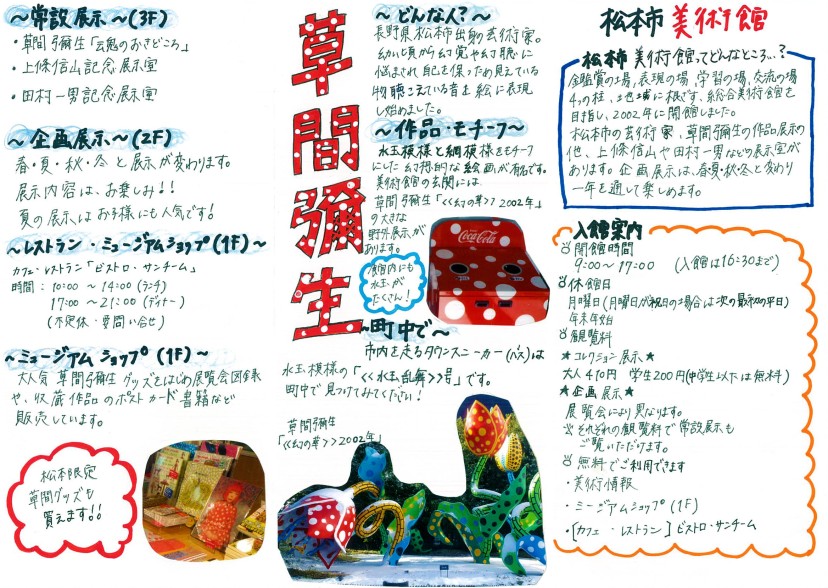 松本市 美術館
松本市 美術館ってどんなところ・・?
鑑賞の場、表現の場、学習の場、交流の場
4つの柱、地域に根ざす、総合美術館を
目指し、2002年に開館しました。
松本市の芸術家、草間彌生の作品展示の
他、上條信山や田村一男などの展示室が
あります。企画展示は、春・夏・秋・冬と変わり
一年を通して楽しめます。
入館案内
開館時間
9:00~17:00 (入館は16:30まで)
休館日
月曜日(月曜日が祝日の場合は次の最初の平日)
年末年始
観覧料
★コレクション展示★
大人410円 学生200円(中学生以下は無料)
★企画展示★
展覧会により異なります。
それぞれの観覧料で常設展示も
ご覧いただけます。
無料でご利用できます
・美術情報
・ミュージアムショップ(1F)
・[カフェ・レストラン]ビストロ・サンチーム
草間彌生
~どんな人?~
長野県松本市出身の芸術家。
幼い頃から幻覚や幻聴に
悩まされ、自己を保つため見えている
物聴こえている音を絵に表現
し始めました。
~作品・モチーフ~
水玉模様と網模様をモチーフ
にした幻想的な絵画が有名です。
美術館の玄関には
草間彌生「<<幻の華>>2002年」
の大きな
野外展示が
あります。
旅館内にも
水玉が
たくさん!
Coca-Cola
~町中で~
市内を走るタウンスニーカー(バス)は
水玉模様の「<<水玉乱舞>>号」です。
町中で見つけてみてください!
草間彌生
「<<幻の華>>2002年」
~常設展示~(3F)
・草間彌生「云鬼のおきどころ」
・上條信山記念展示室
・田村一男記念展示室
~企画展示~(2F)
春・夏・秋・冬と展示が変わります。
展示内容は、お楽しみ!!
夏の展示はお子様にも人気です!
~レストラン・ミュージアムショップ(1F)~
カフェ・レストラン「ビストロ・サンチーム」
時間:10:00~14:00(ランチ)
17:00~21:00(ディナー)
(不定休・要問い合せ)
~ミュージアムショップ(1F)~
大人気 草間彌生グッズをはじめ展覧会図録
や、収蔵作品のポストカード書籍など
販売しています。
松本限定
草間グッズも
買えます!!